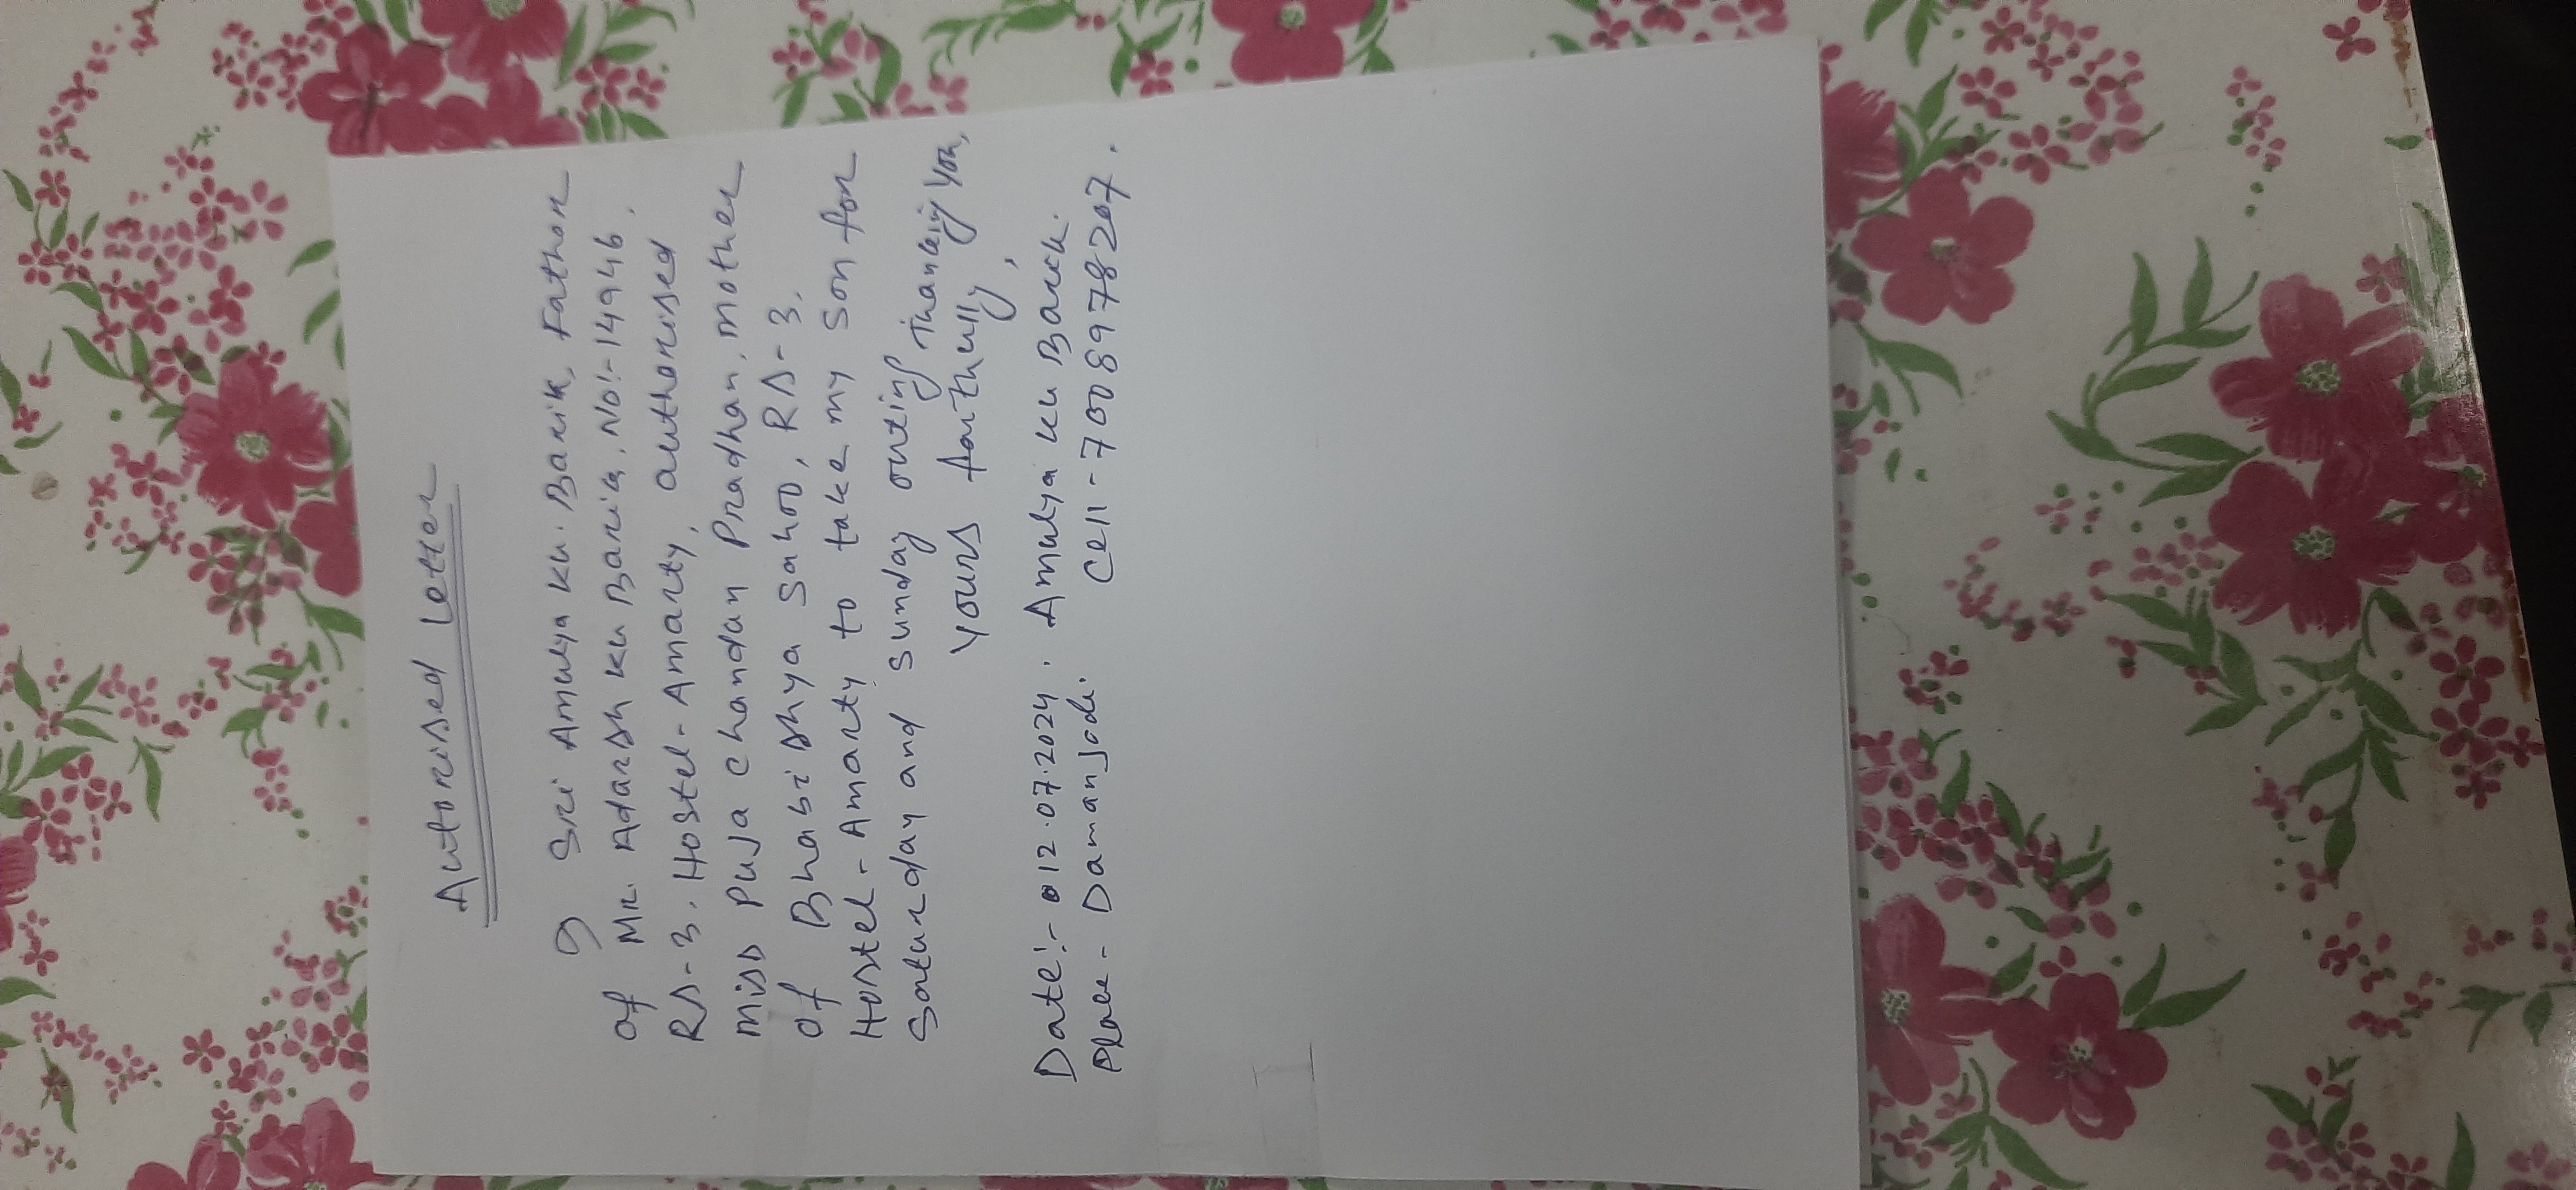 Autorised Letter
I Sri Amulya Ku. Barik, Father
of Mr. Adarsh Ku Barik, No:- 14946.
RS-3. Hostel-Amarty, authorised
miss Puja Chandan Pradhan, mother
of Bhabishya Sahoo, RS-3.
Hostel-Amarty to take my son for
Saturday and Sunday outing Thanking You,
Yours faithully,
Date:- 12.07.2024. Amulya Ku Barik.
Place- Damanjodi. Cell-7008978207.